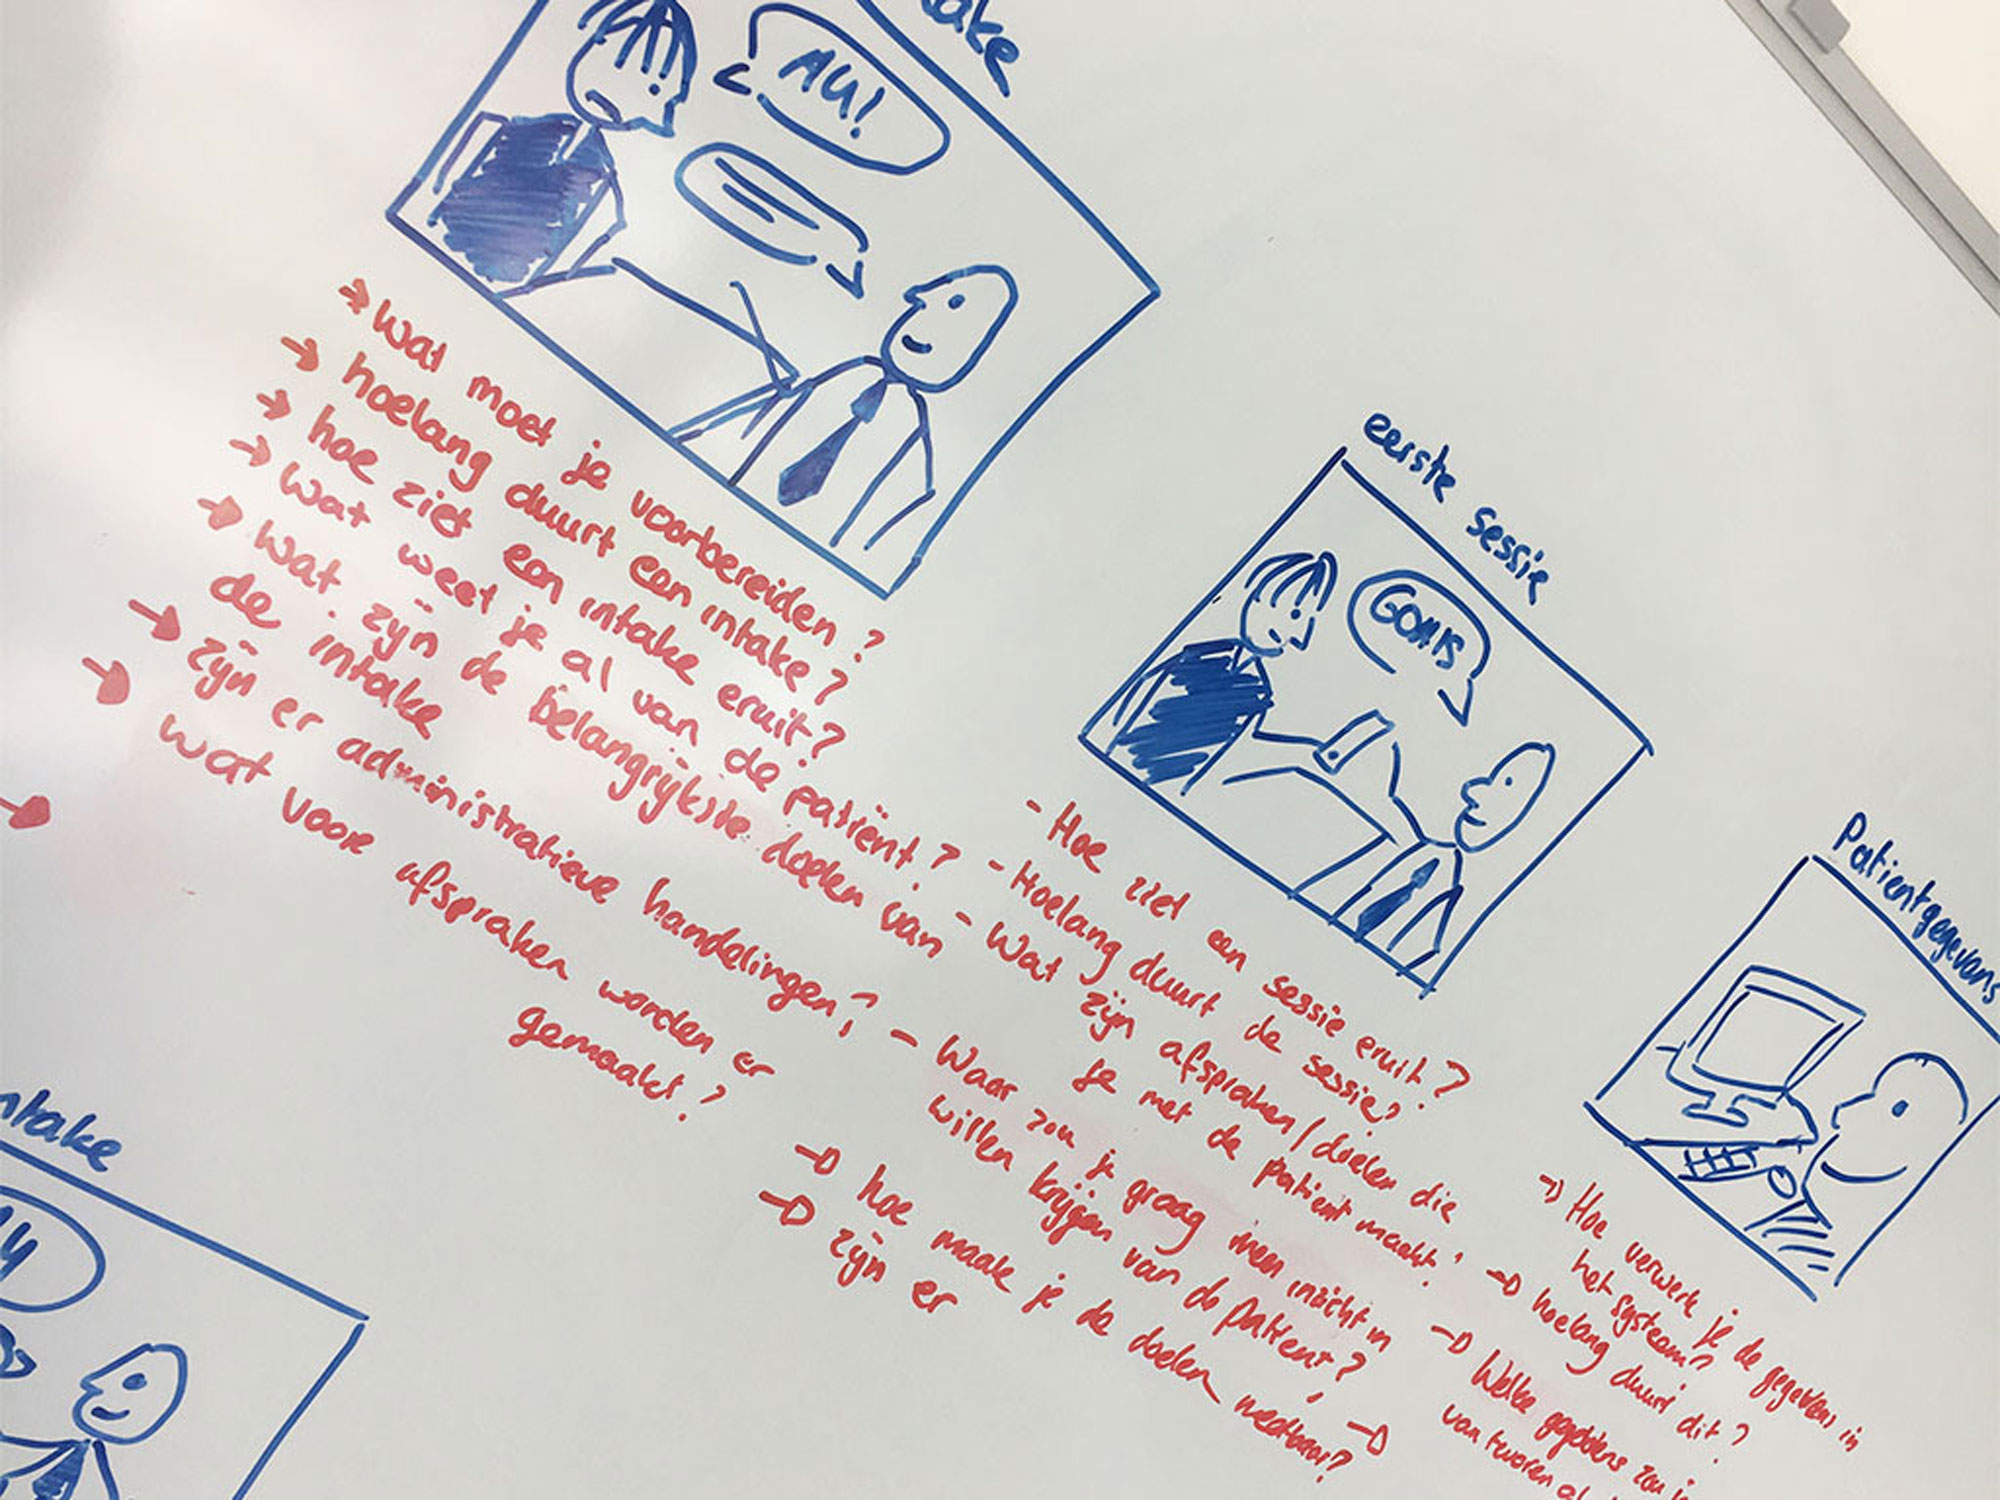 AU!
→ Wat moet je voorbereiden?
→ hoelang duurt een intake?
→ hoe ziet een intake eruit?
→ Wat weet je al van de patiënt?
→ Wat zijn de belangrijkste doelen van
de intake
→ zijn er administratieve handelingen?
→ wat voor afspraken worden er
gemaakt?
eerste sessie
- Hoe ziet een sessie eruit?
- Hoelang duurt de sessie?
- Wat zijn afspraken/doelen die
je met de patient maakt?
- Waar zou je graag meer inzicht in
willen krijgen van de patient?
→ hoe maak je de doelen meetbaar?
→ zijn er
Patientgegevens
→ Hoe verwerk je de gegevens in
het systeem?
→ hoelang duurt dit?
→ Welke gegevens zou je
intake